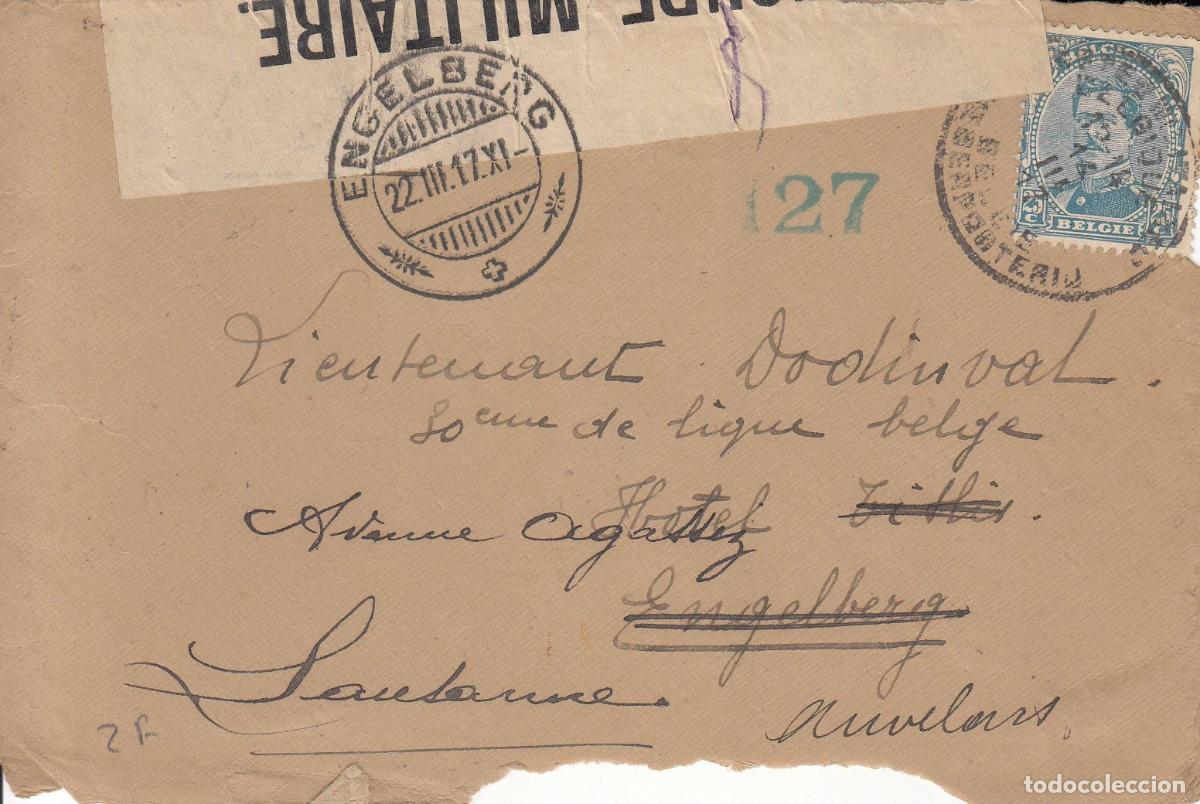 MILITAIRE.
ENGELBERG
22.III.17.XI-
127
BELGIE
14 III
25 C
BELGIE
Lieutenant Dodinval.
10eme de ligne belge
Hotel Titlis.
Avenue Agassiz
Engelberg
Lausanne.
2F
todocoleccion